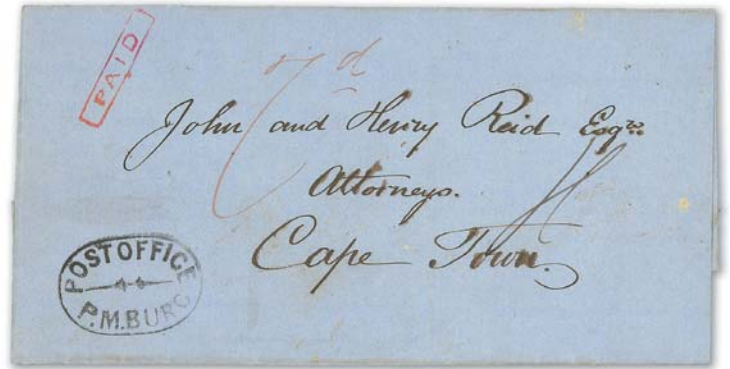 PAID
7d
John and Henry Reid Esqrs.
Attorneys.
Cape Town.
POST OFFICE
P.M.BURG